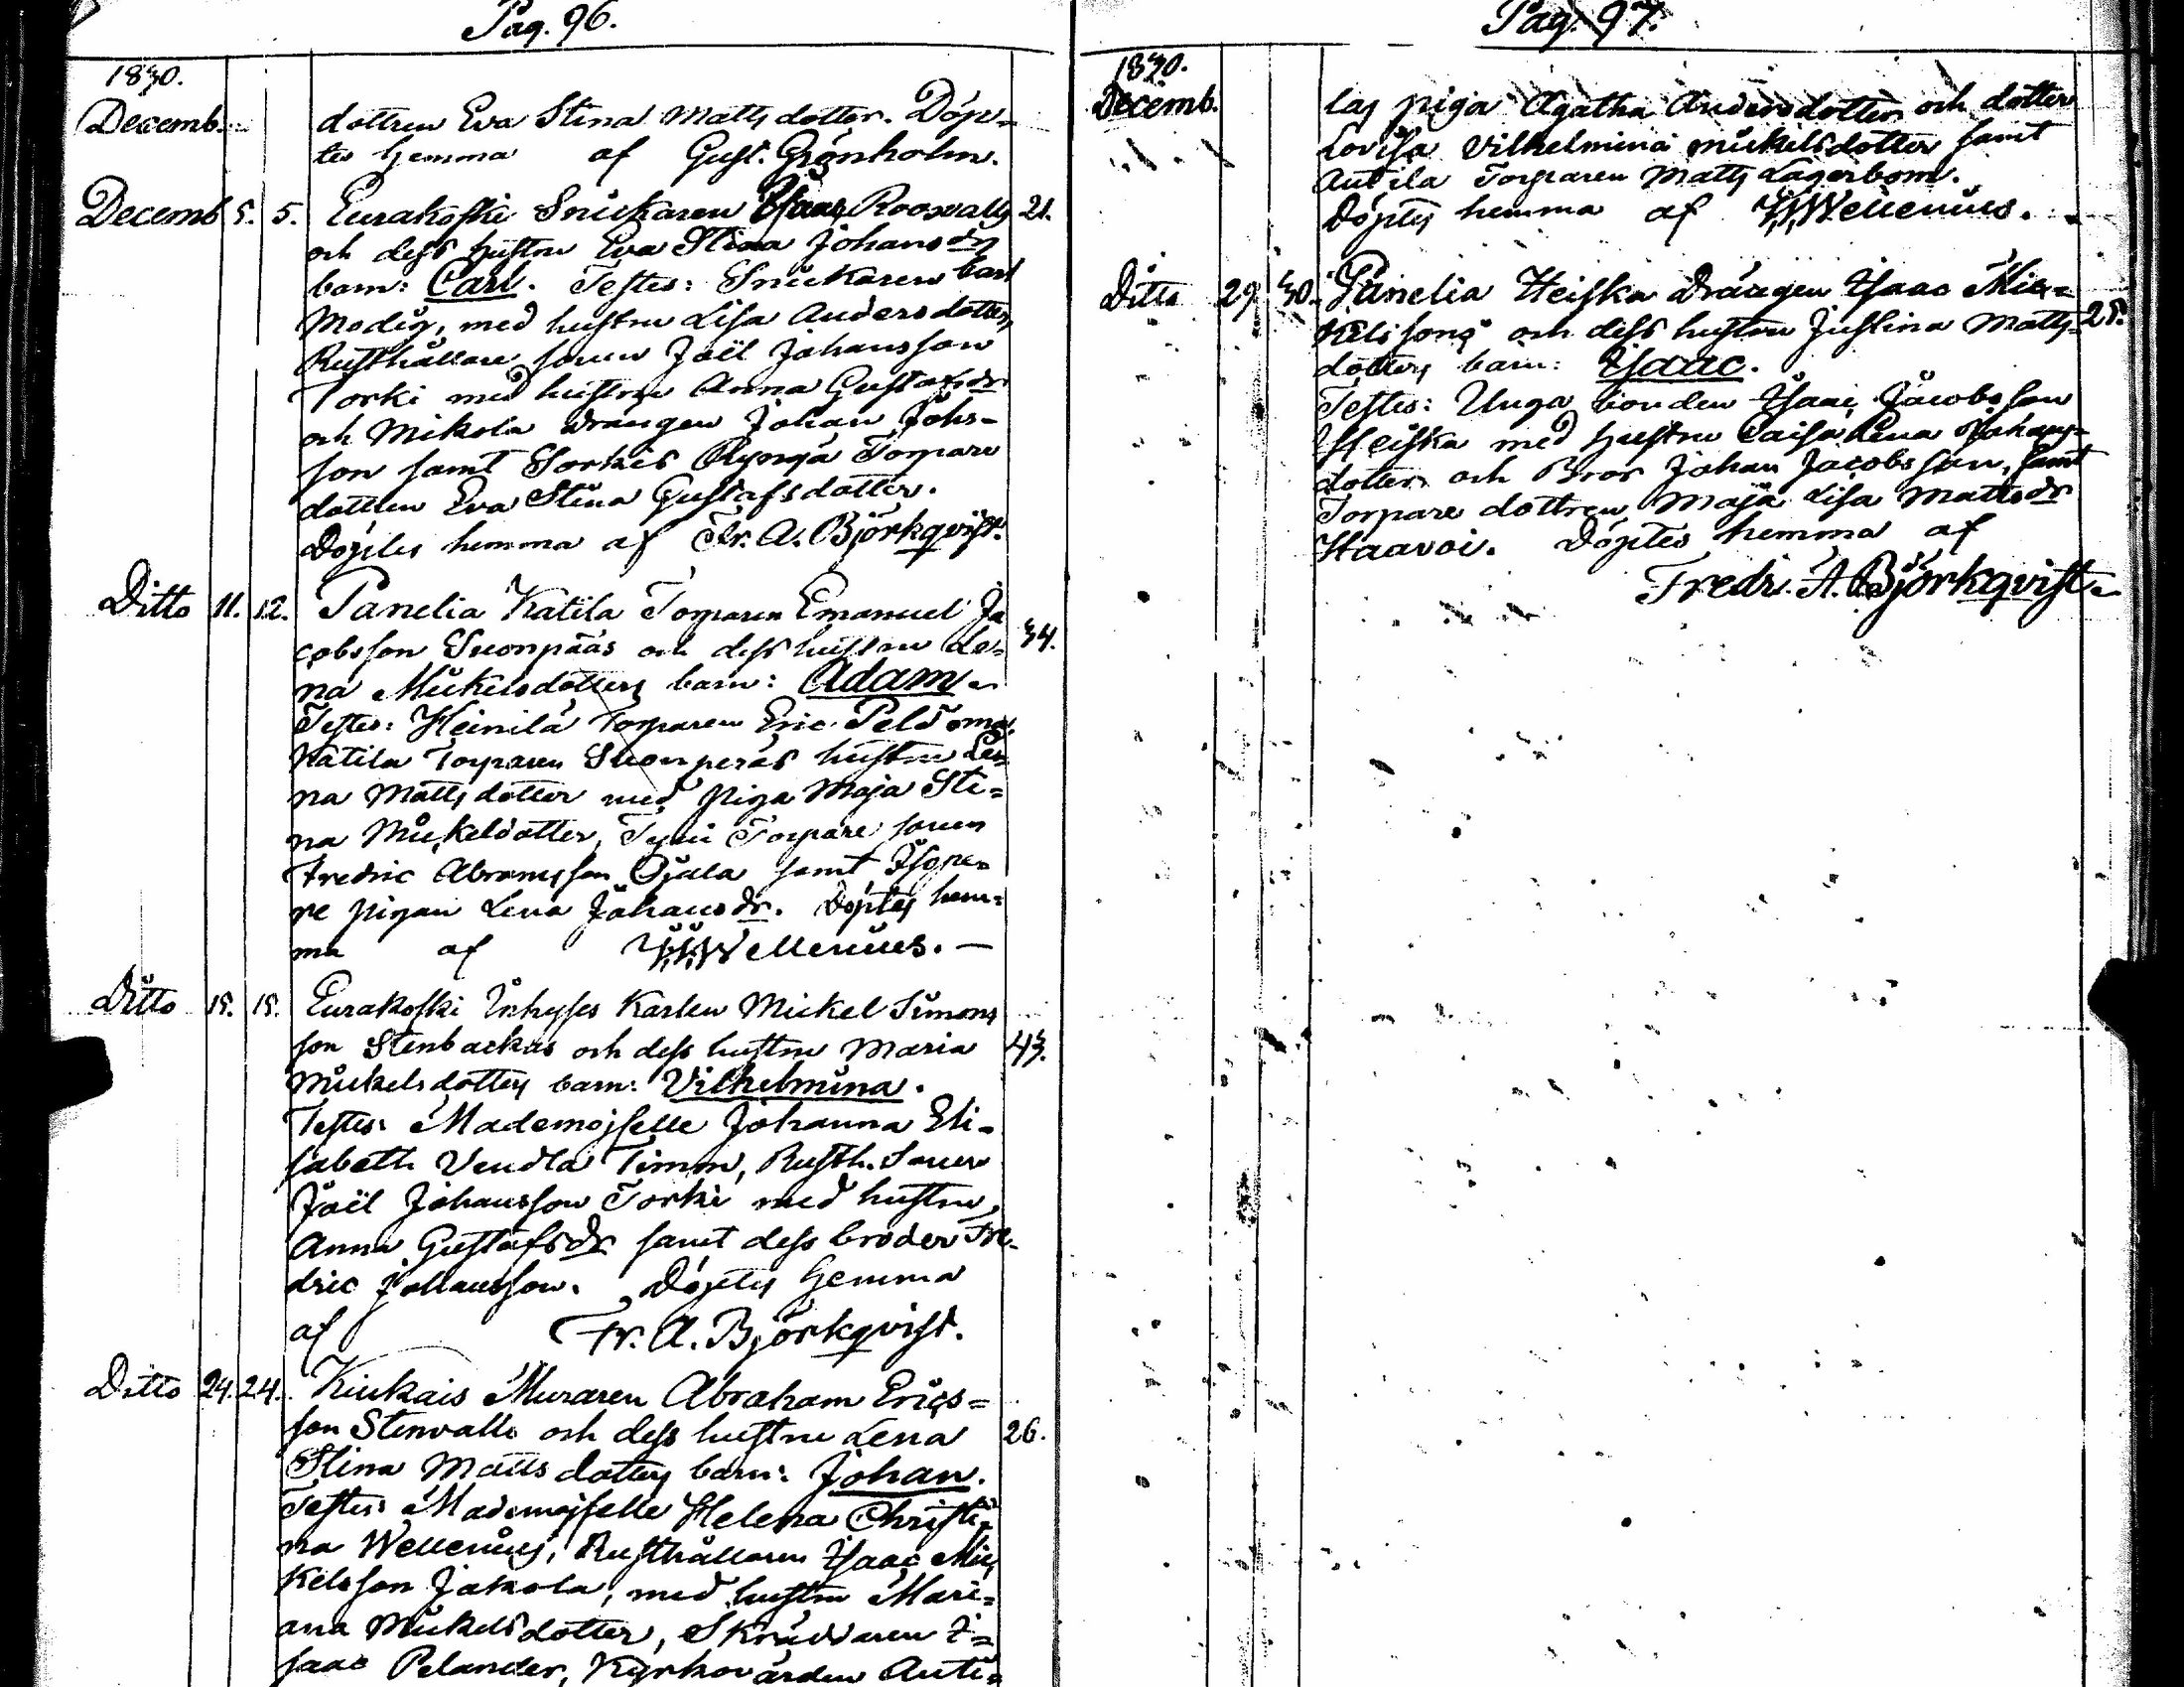 Pag. 96.
1830.
Decemb.
dottren Eva Stina Matts dotter. Döp=
tes hemma af Gust. Grönholm.
Decemb 5. 5. Eurakoski Snickaren Isaac Roosvalls 21.
och dess hustru Eva Stina Johans drs
barn: Carl. Testes: Snickaren Carl
Modig, med hustru Lisa Anders dotter,
Rusthållare sonen Joël Johansson
Torki med hustru Anna Gustafs dr
och Mikola drängen Johan Johs=
son samt Torkis Torpare
dottren Eva Stina Gustafsdotter.
Döptes hemma af Fr. A. Björkqvist.
Ditto 11. 12. Panelia Katila Torparen Emanuel Ja
cobsson Suonpääs och dess hustru Le= 34.
na Mickelsdotters barn: Adam.
Testes: Heinilä Torparen Eric Peldoma,
Katila Torparen Suonperäs hustru Le=
na Matts dotter med piga Maja Sti=
na Mickelsdotter, Torpare sonen
Fredric Abramsson Ojala samt
re pigan Lena Johans dr. Döptes hem=
ma af Wellenius. —
Ditto 15. 15. Eurakoski Inhyses Karlen Mickel Simons
son Stenbackas och dess hustru Maria 43.
Mickels dotters barn: Vilhelmina.
Testes: Mademojselle Johanna Eli=
sabeth Vendla Timm, Rusth. Sonen
Joël Johansson Torki med hustru
Anna Gustafs dr samt dess broder Fre=
dric Johansson. Döptes hemma
af Fr. A. Björkqvist.
Ditto 24. 24. Kiukais Muraren Abraham Erics=
son Stenvalls och dess hustru Lena 26.
Stina Matts dotters barn: Johan.
Testes: Mademojselle Helena Christi=
na Wellenius, Rusthållaren Isaac Mic=
kelsson Jakola, med hustru Mari=
ana Mickelsdotter, Skräddaren I=
saac Pelander, Kyrkovärden Anti=
Pag. 97.
1830.
Decemb.
las piga Agatha Andersdotter och dotter
Lovisa Vilhelmina Mickelsdotter samt
Antila Torparen Matts Lagerbom.
Döptes hemma af Wellenius.
Ditto 29 30. Panelia Heiska Drängen Isaac Mic=
kelssons och dess hustru Justina Matts= 28.
dotters barn: Isaac.
Testes: Unga bonden Isaac Jacobsson
Heiska med hustru Caisa Lena Johans=
dotter och Bror Johan Jacobsson, samt
Torpare dottren Maja Lisa Matts dr
Haavoi. Döptes hemma af
Fredr. A. Björkqvist.